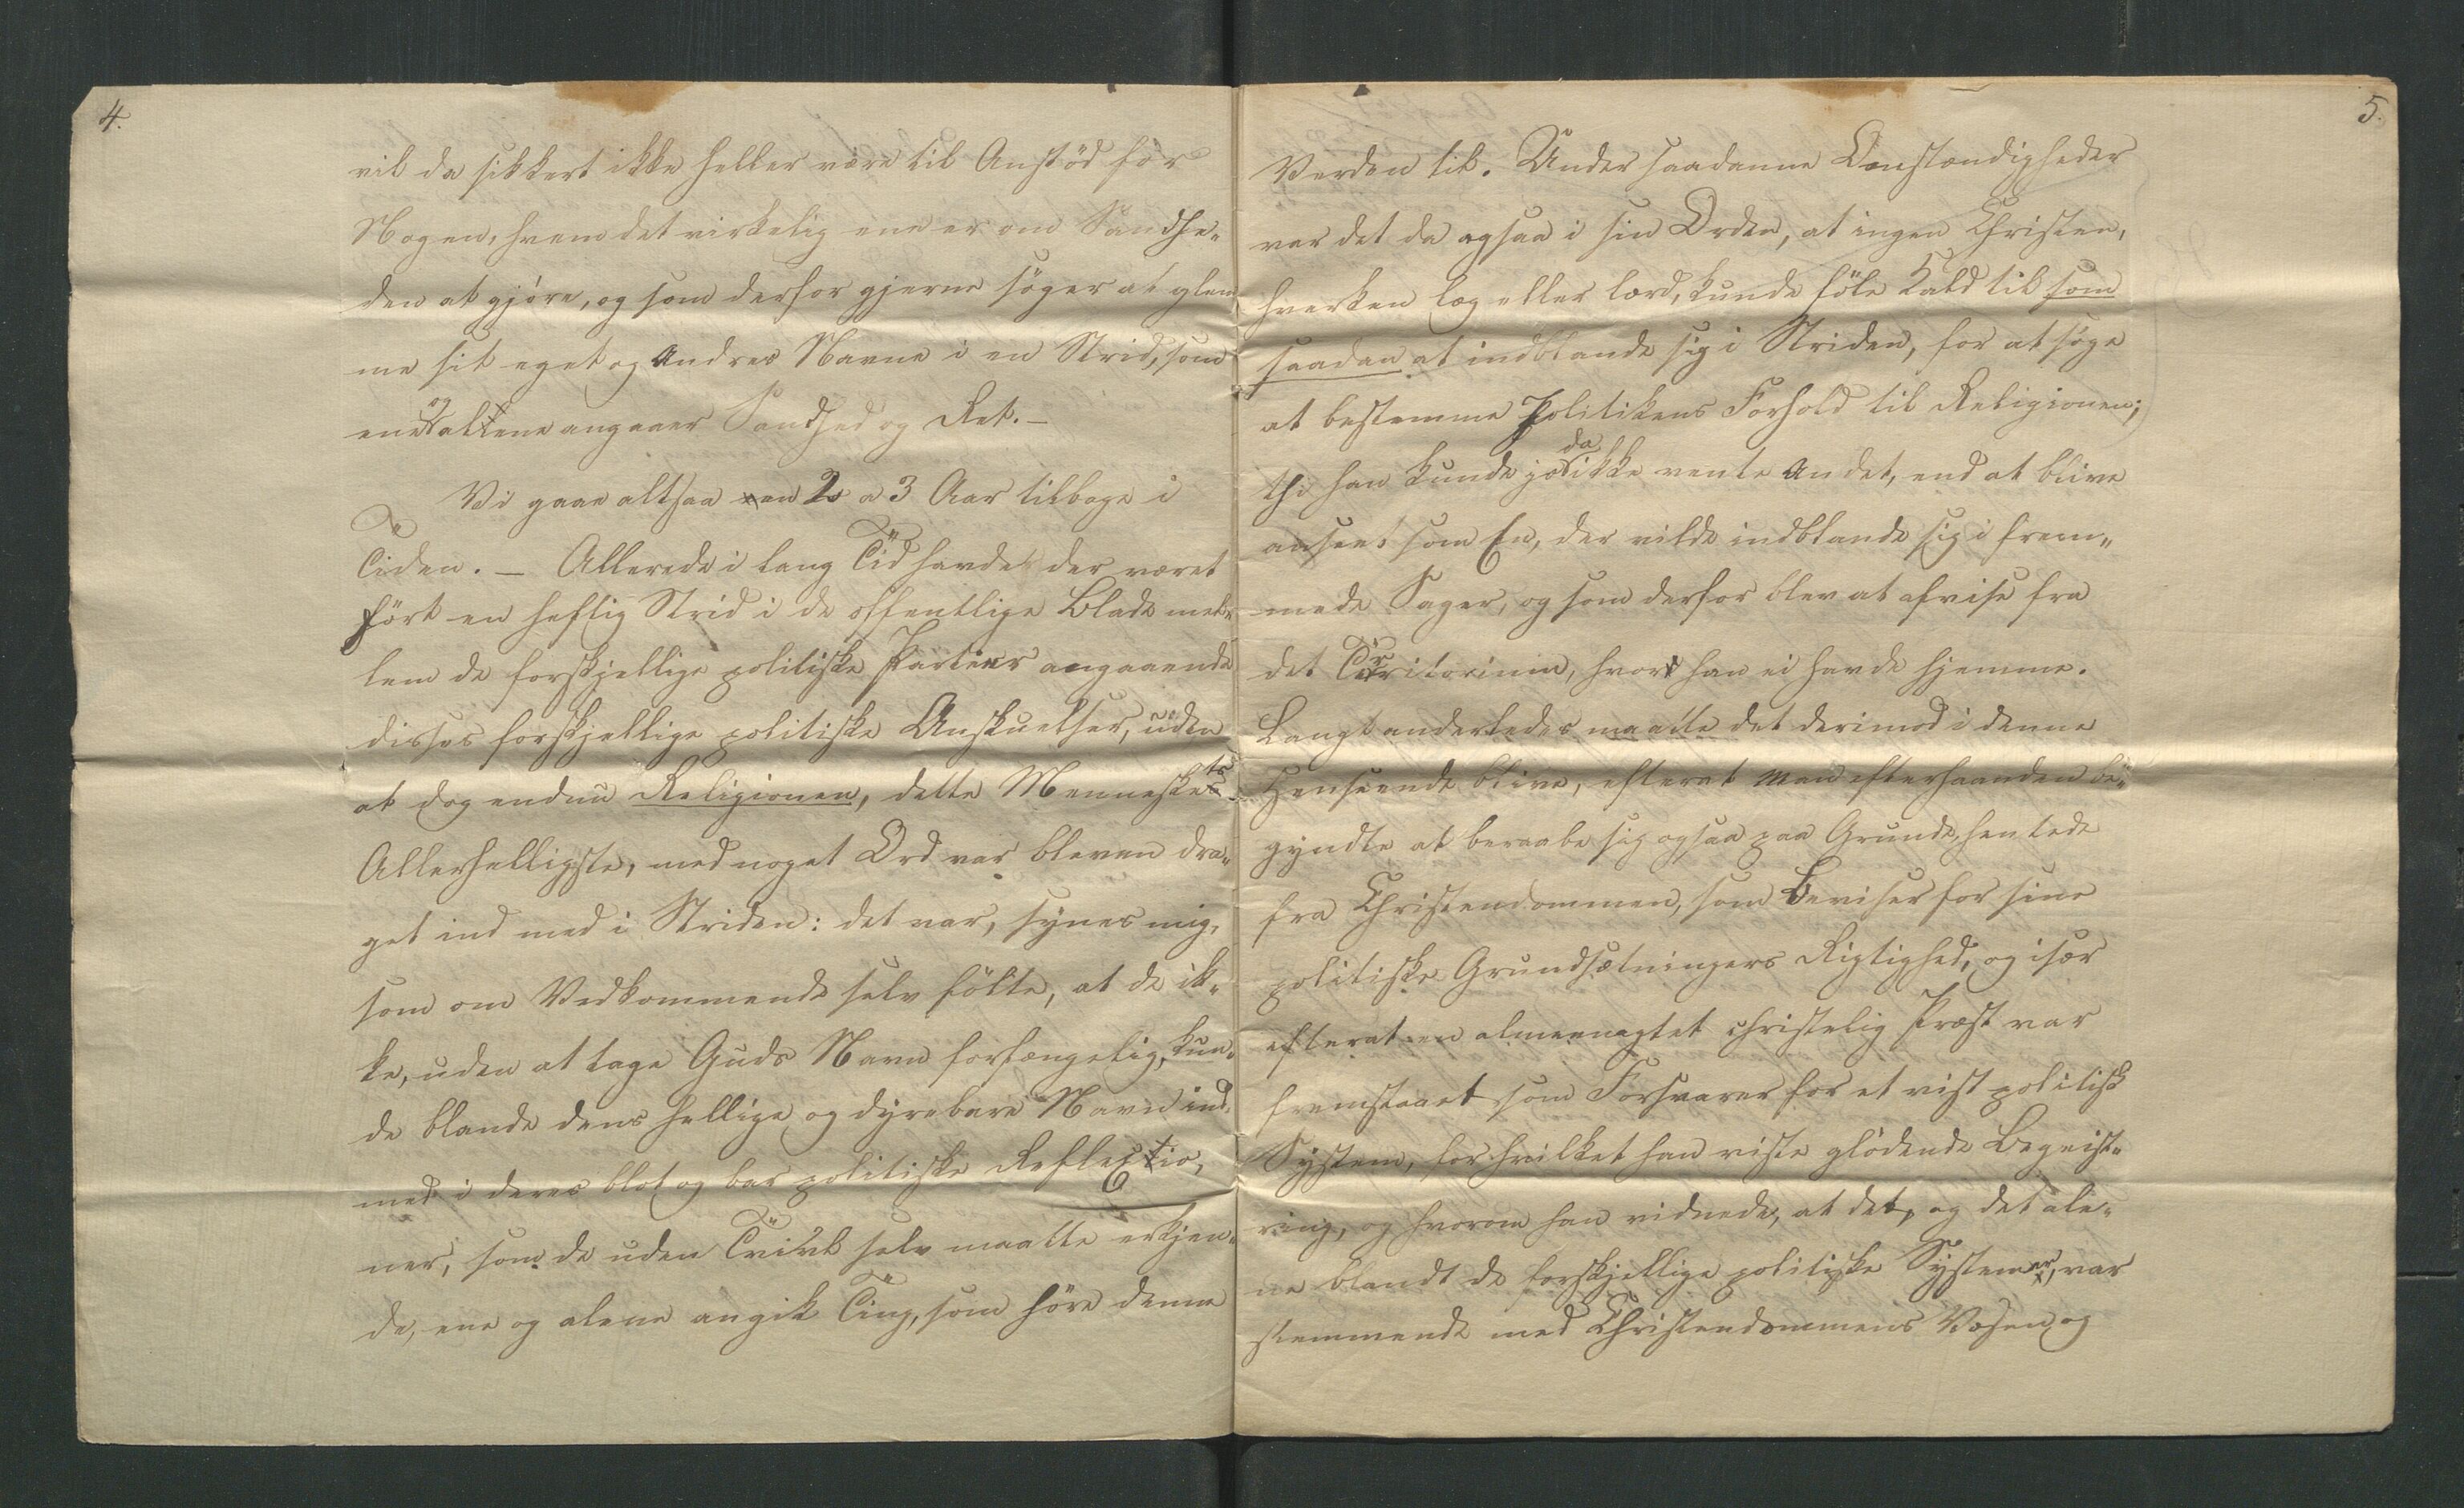 4.
vil da sikkert ikke heller være til Anstöd for
Nogen, hvem det virkelig ene er om Sandhe„
den at gjöre, og som derfor gjerne söger at glem
me sit eget og Andres Navne i en Strid, som
ene og allene angaaer Sandhed og Ret. —
Vi gaae altsaa en 2 a 3 Aar tilbage i
Tiden. — Allerede i lang Tid havde der været
fört en heftig Strid i de offentlige Blade mel„
lem de forskjellige politiske Partier angaaende
disses forskjellige politiske Anskuelser, uden
at dog endnu Religionen, dette Menneskets
Allerhelligste, med noget Ord var bleven dra„
get ind med i Striden: det var, synes mig,
som om Vedkommende selv fölte, at de ik„
ke, uden at tage Guds Navn forfængelig, kun„
de blande dens hellige og dyrebare Navn ind
med i deres blot og bar politiske Reflectio„
ner, som de uden Tvivl selv maatte erkjen„
de, ene og alene angik Ting, som höre denne
5.
Verden til. Under saadanne Omstændigheder
var det da ogsaa i sin Orden, at ingen Christen,
hverken læg eller lærd, kunde föle Kald til som
saadan at indblande sig i Striden, for at söge
at bestemme Politikens Forhold til Religionen;
thi han kunde jo da ikke vente Andet, end at blive
anseet som En, der vilde indblande sig i frem„
mede Sager, og som derfor blev at afvise fra
det Territorium, hvor han ei havde hjemme.
Langt anderledes maatte det derimod i denne
Henseende blive, efterat man efterhaanden be„
gyndte at beraabe sig ogsaa paa Grunde, hentede
fra Christendommen, som Beviser for sine
politiske Grundsætningers Rigtighed, og især
efterat en almeenagtet christelig Præst var
fremstaaet som Forsvarer for et vist politisk
System, for hvilket han viste glödende Begeist„
ring, og hvorom han vidnede, at det, og det ale„
ne blandt de forskjellige politiske Systemer, var
stemmende med Christendommens Væsen og